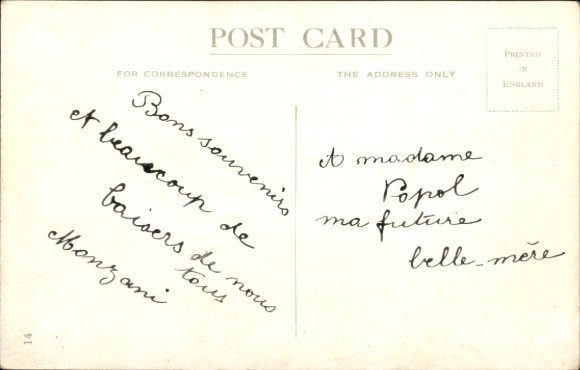 POST CARD
FOR CORRESPONDENCE
THE ADDRESS ONLY
PRINTED
IN
ENGLAND
Bons souvenirs
et beaucoup de
baisers de nous
tous
Manzani
A madame
Popol
ma future
belle-mère
14